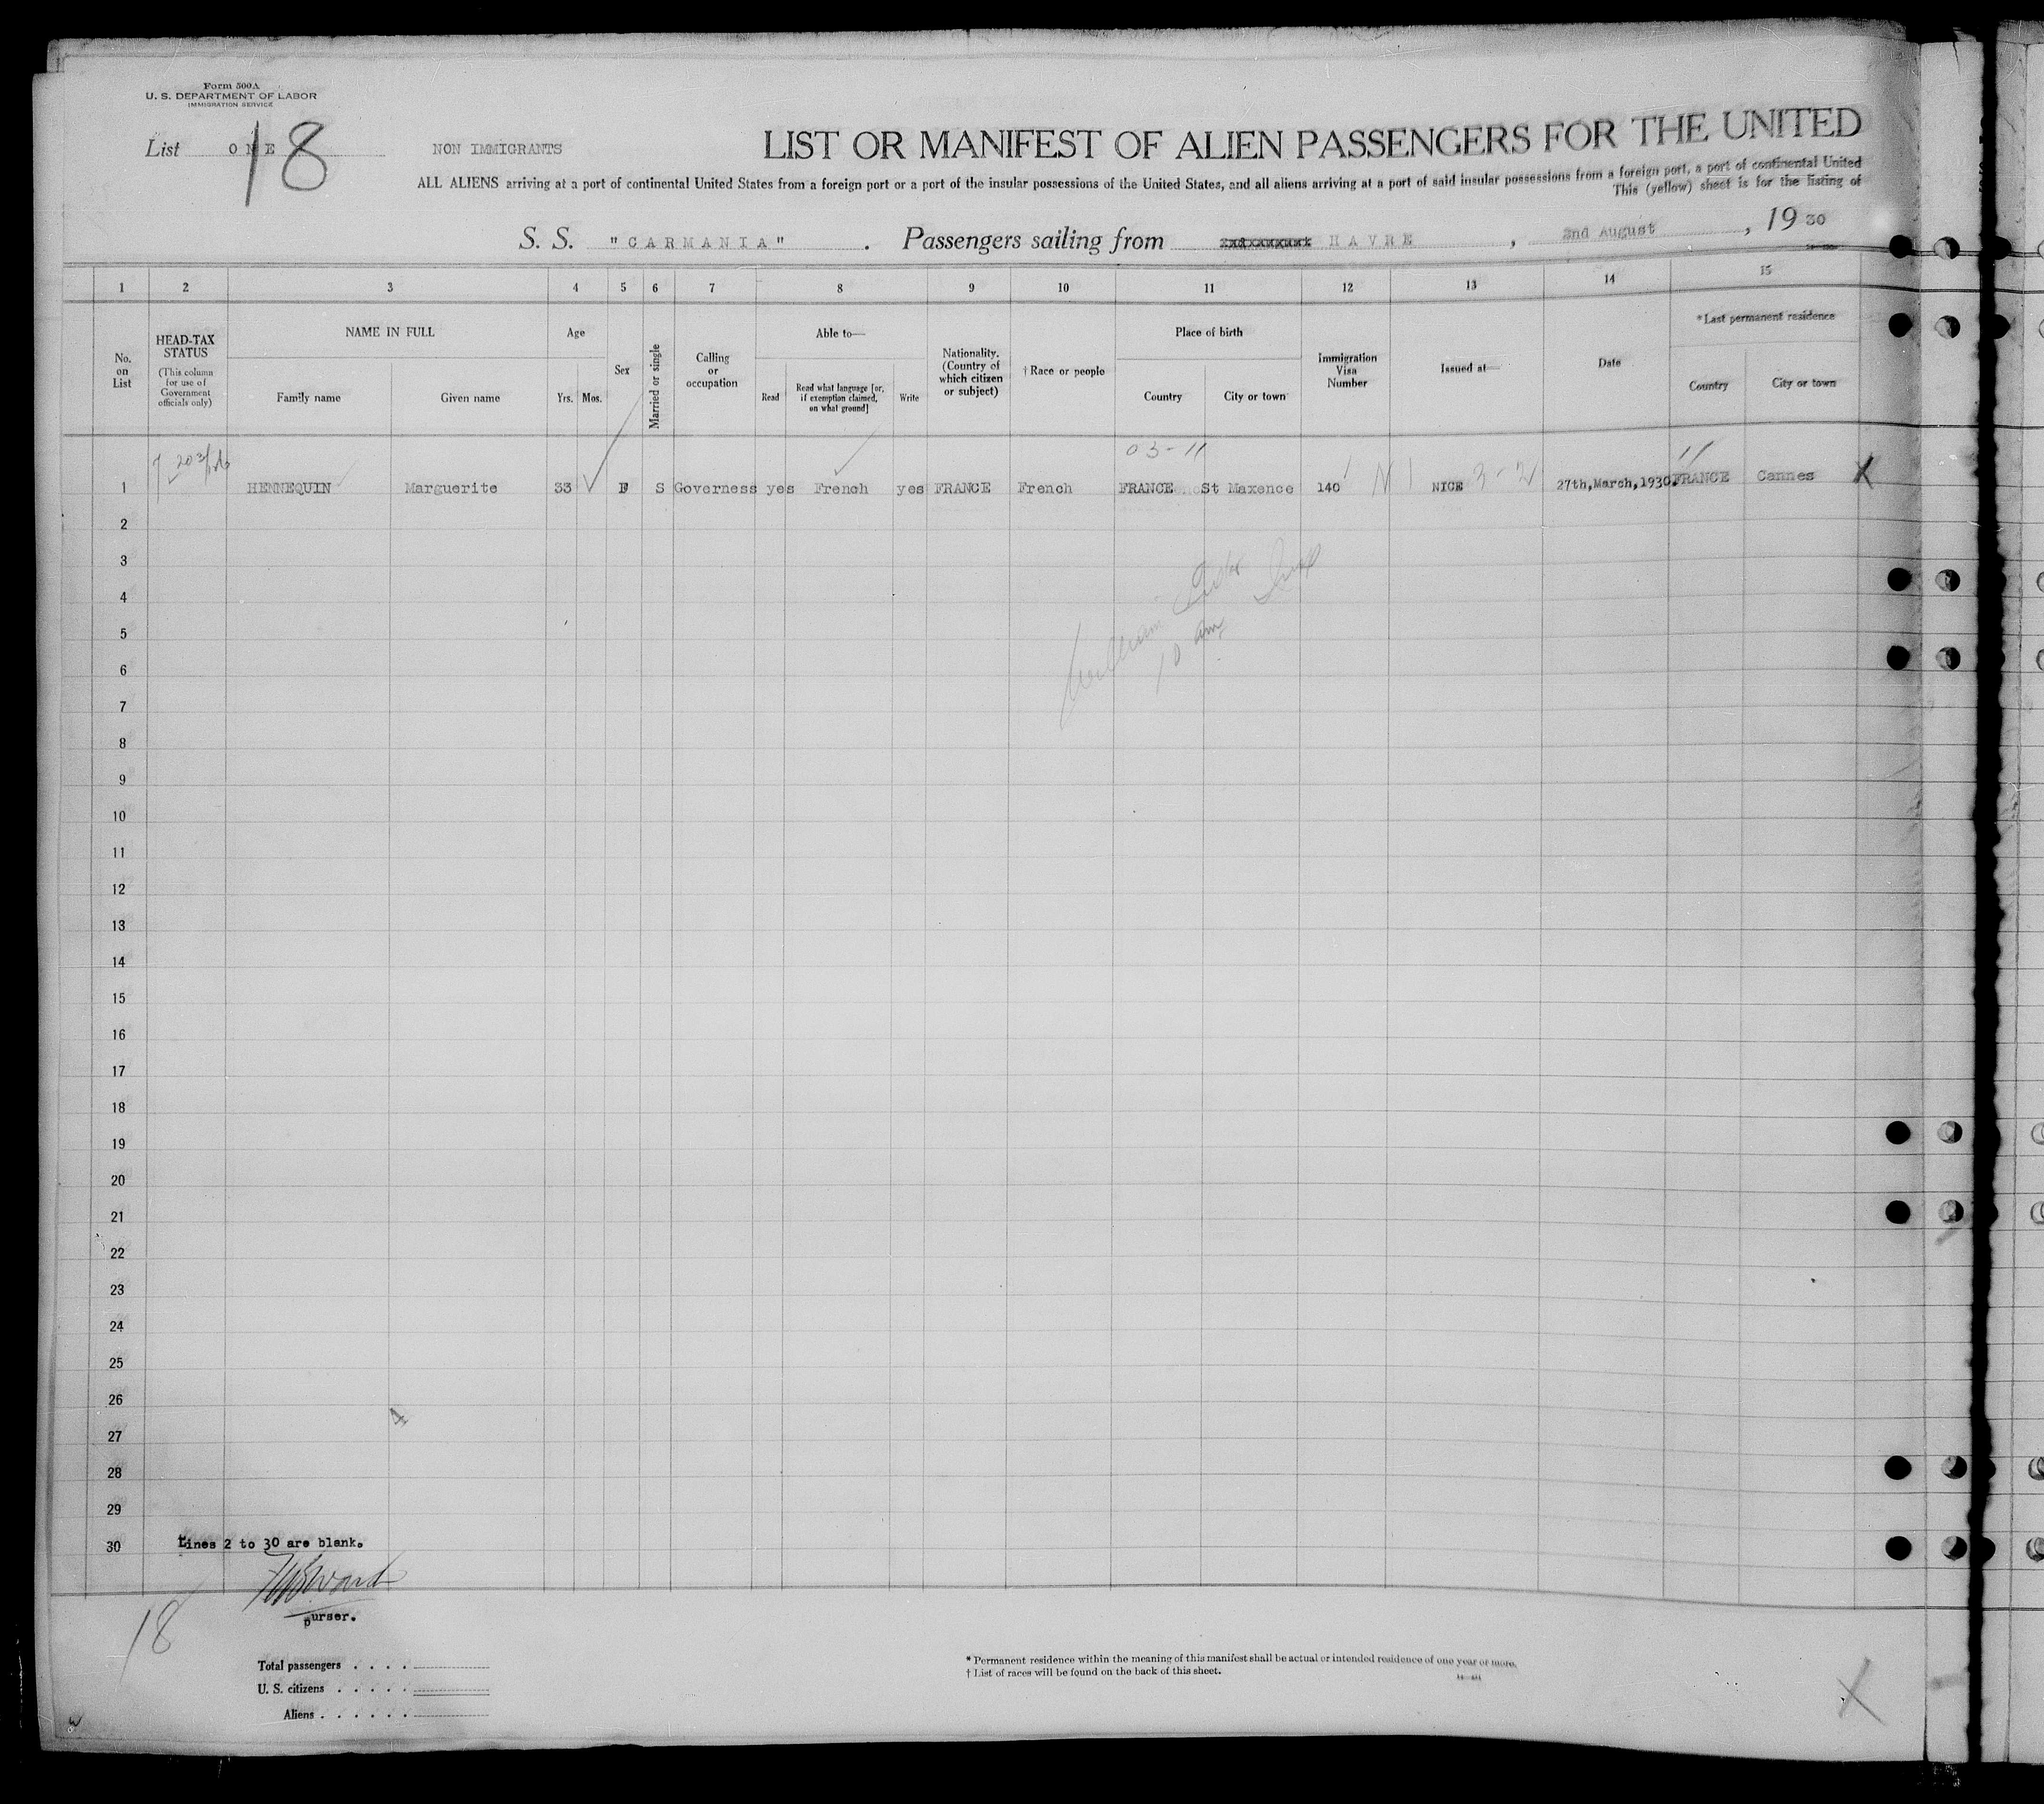 Form 500A
U. S. DEPARTMENT OF LABOR
IMMIGRATION SERVICE
List ONE 18 NON IMMIGRANTS
LIST OR MANIFEST OF ALIEN PASSENGERS FOR THE UNITED
ALL ALIENS arriving at a port of continental United States from a foreign port or a port of the insular possessions of the United States, and all aliens arriving at a port of said insular possessions from a foreign port, a port of continental United
This (yellow) sheet is for the listing of
S. S. "CARMANIA". Passengers sailing from HAVRE, 2nd August, 1930
1 2 3 4 5 6 7 8 9 10 11 12 13 14 15
No. on List
HEAD-TAX STATUS
(This column for use of Government officials only)
NAME IN FULL
Family name
Given name
Age
Yrs.
Mos.
Sex
Married or single
Calling or occupation
Able to—
Read
Read what language [or, if exemption claimed, on what ground]
Write
Nationality. (Country of which citizen or subject)
†Race or people
Place of birth
Country
City or town
Immigration Visa Number
Issued at—
Date
*Last permanent residence
Country
City or town
03-11
1 HENNEQUIN Marguerite 33 F S Governess yes French yes FRANCE French FRANCE St Maxence 140 NI NICE 3-2 27th,March,1930. FRANCE Cannes X
2
3
4
5
6
10 am
7
8
9
10
11
12
13
14
15
16
17
18
19
20
21
22
23
24
25
26
4
27
28
29
30 Lines 2 to 30 are blank.
purser.
18
Total passengers . . . .
U. S. citizens . . . . .
Aliens . . . . . .
* Permanent residence within the meaning of this manifest shall be actual or intended residence of one year or more.
† List of races will be found on the back of this sheet.
X